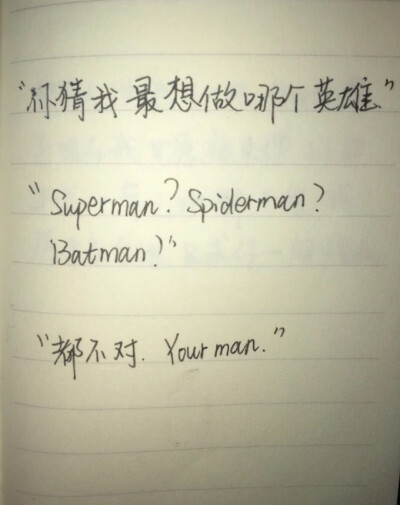 “你猜我最想做哪个英雄.”
“Superman? Spiderman?
Batman?”
“都不对. Your man.”